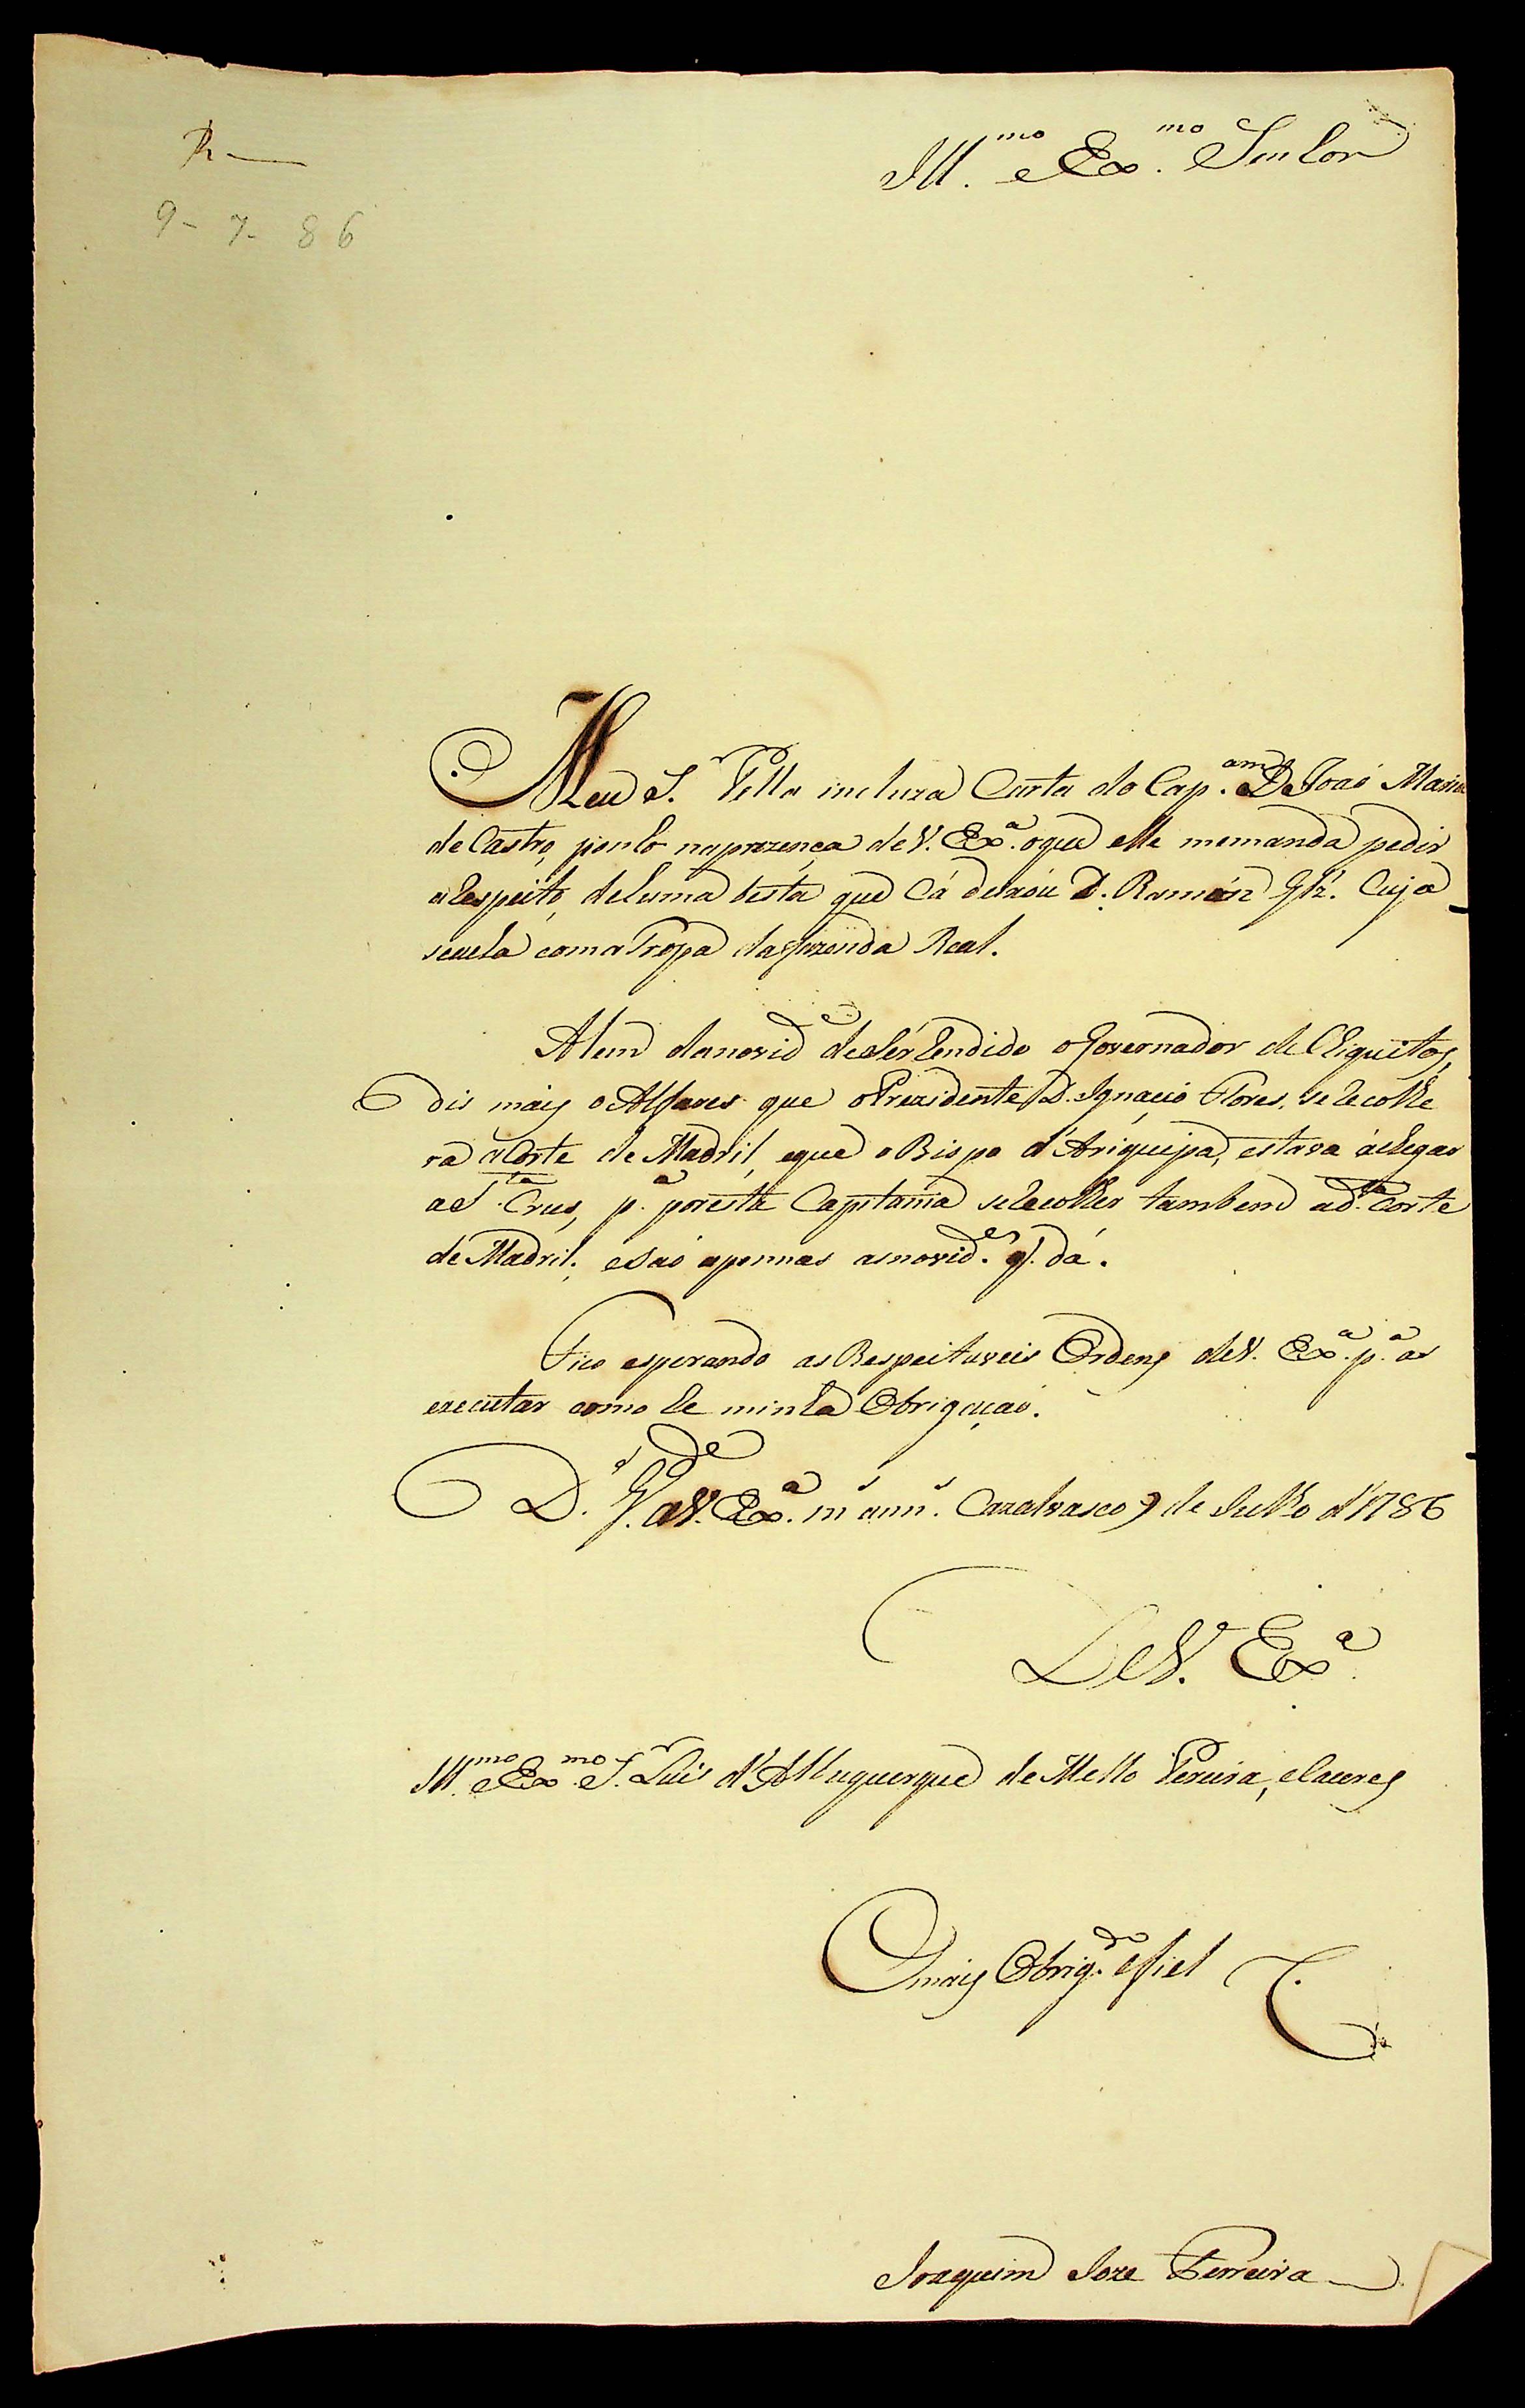 R
9-7-86
Ill.mo e Ex.mo Senhor
Meu S.r Pella incluza Carta do Cap.am D. Joaõ Maria
de Castro, ponho na prezença de V. Ex.a o que elle me manda pedir
a respeito, de huma besta que Cá deixou D. Ramón Glz. Cuja
se acha com a Tropa da fazenda Real.
Alem da novid.e de ser rendido o Governador de Chiquitos,
Dis mais o Alferes que o Prezidente D. Ignacio Flores, se recolhe
ra a Corte de Madril, e que o Bispo d'Ariquipa, estava á chegar
a S.ta Crus, p.a por esta Capitania se recolher tambem a d.ta Corte
de Madril; e saõ apennas as novid.es q. dá.
Fico esperando as Respeitaveis Ordens de V. Ex.a p.a as
executar como he minha Obrigaçaõ.
D.s G.de a V. Ex.a m.s ann.s Cazalvasco 9 de Julho d'1786
De V. Ex.a
Ill.mo e Ex.mo S.r Luis d'Albuquerque de Mello Pereira, e Caceres
O mais Obrig.do e fiel C.
Joaquim Joze Ferreira